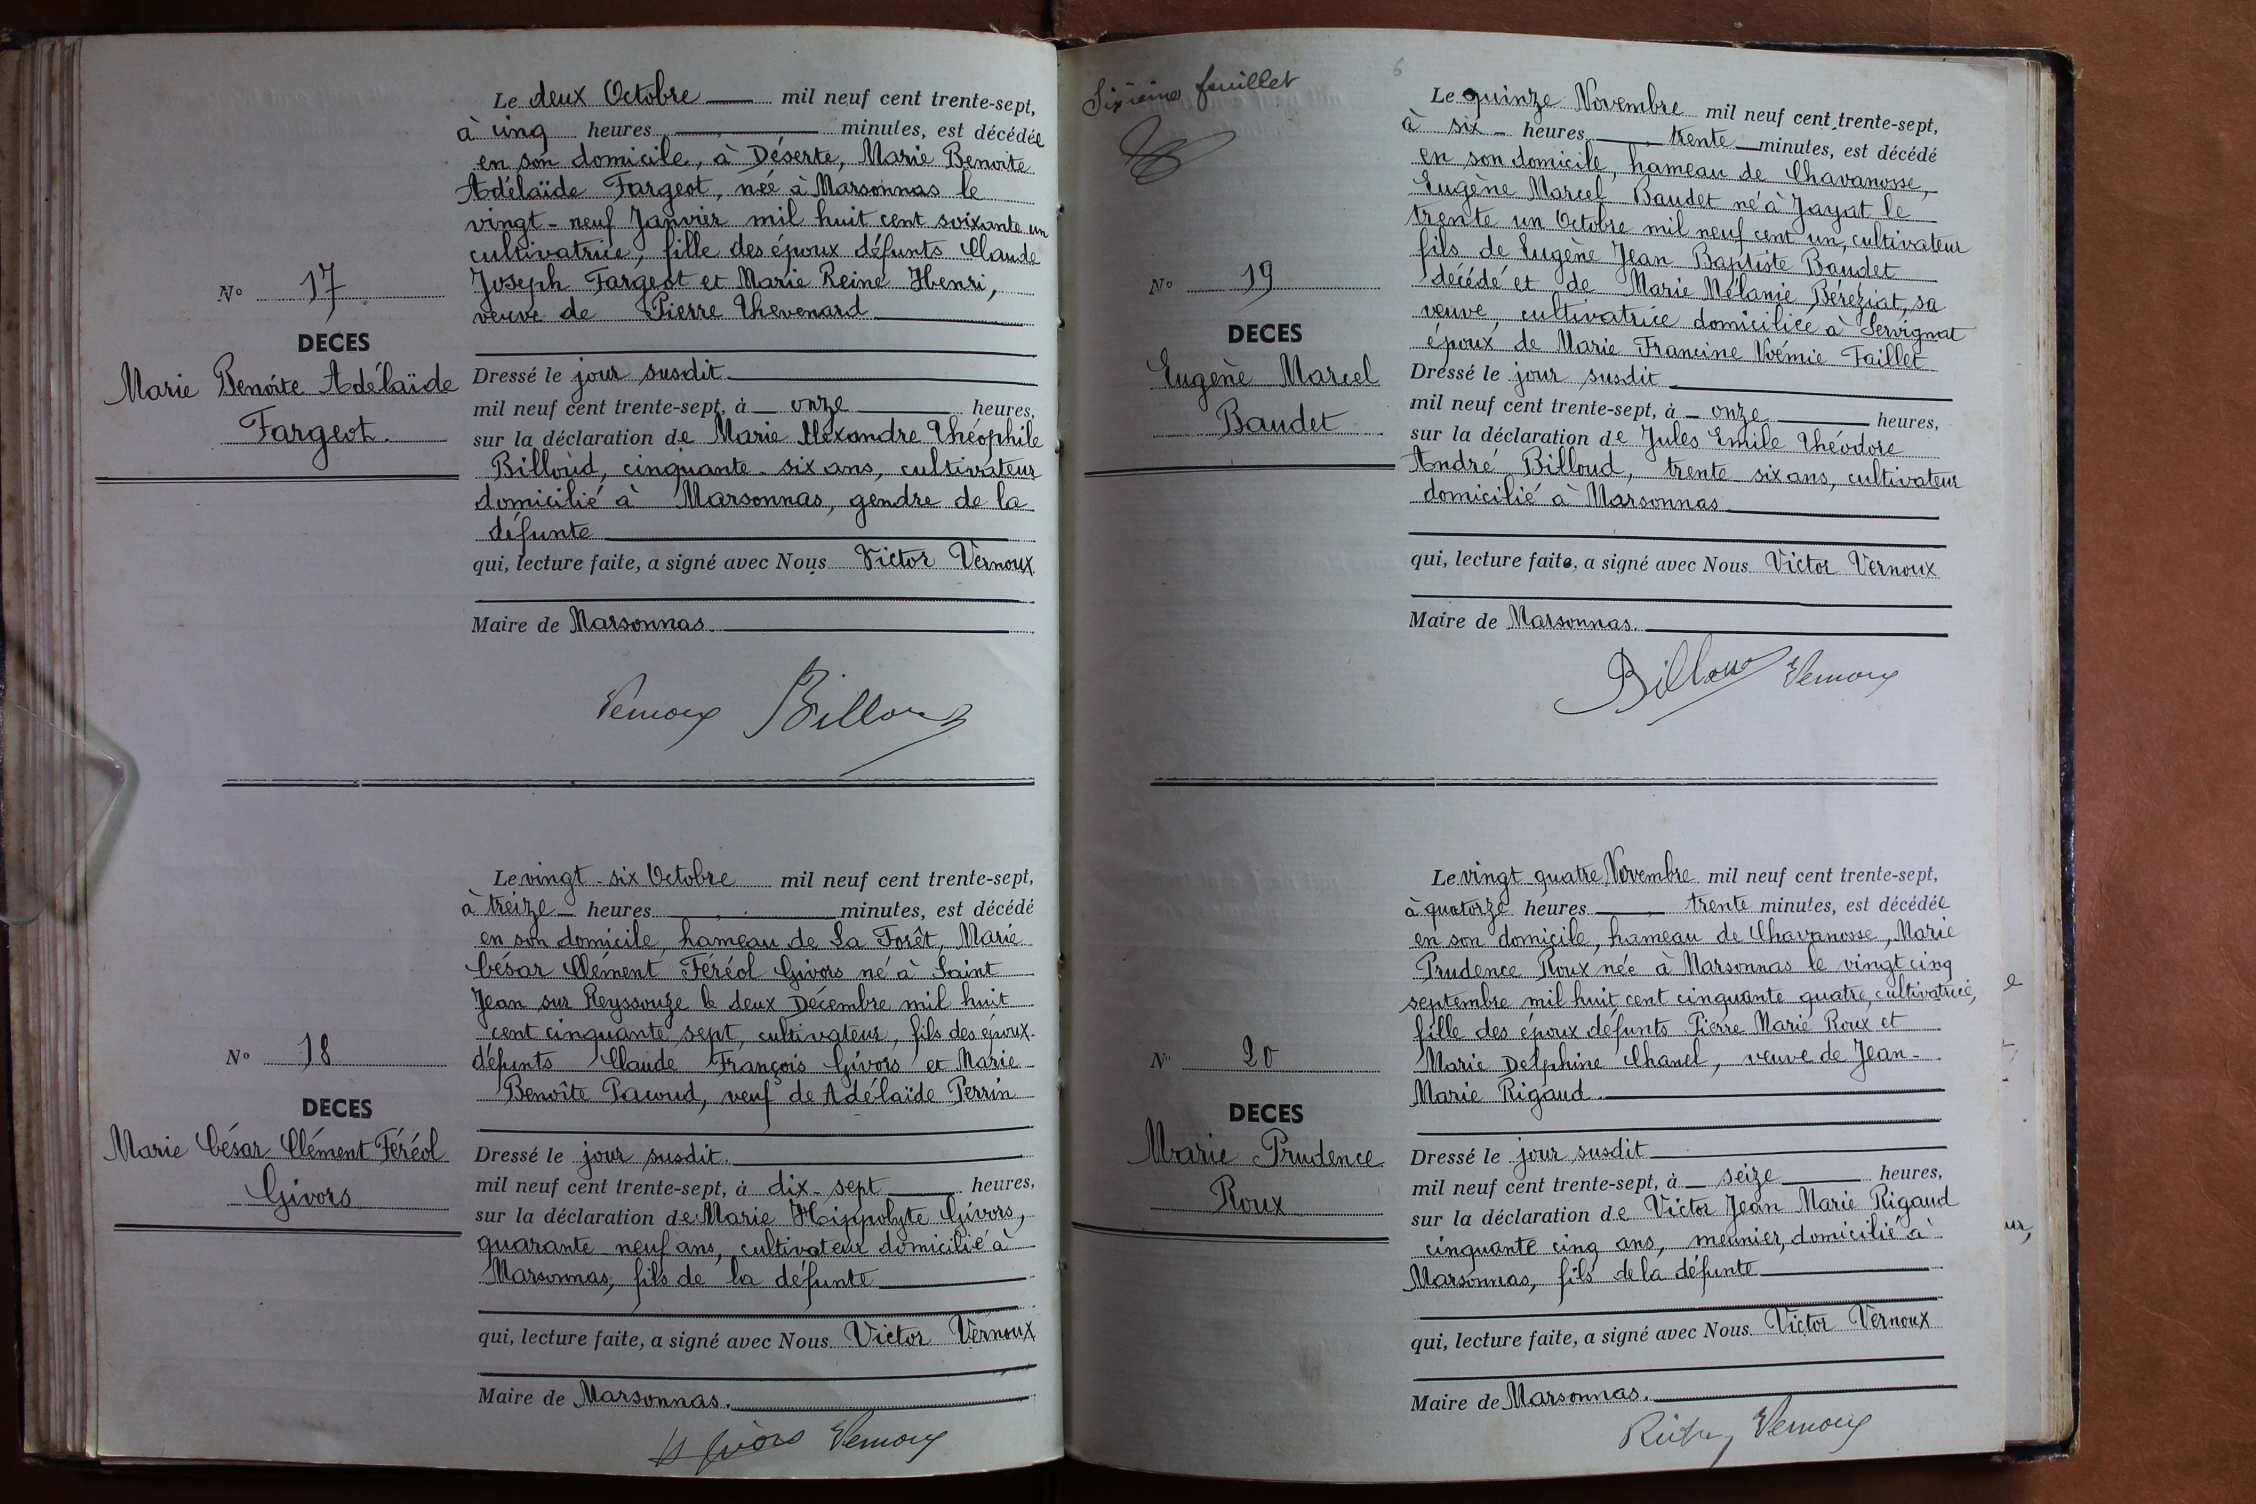 Le deux Octobre mil neuf cent trente-sept,
à cinq heures, minutes, est décédée
en son domicile, à Déserte, Marie Benoite
Adélaïde Fargeot, née à Marsonnas le
vingt-neuf Janvier mil huit cent soixante un
cultivatrice, fille des époux défunts Claude
Joseph Fargeot et Marie Reine Henri,
veuve de Pierre Thevenard
No 17
DECES
Marie Benoite Adélaïde
Fargeot.
Dressé le jour susdit
mil neuf cent trente-sept, à onze heures,
sur la déclaration de Marie Alexandre Théophile
Billoud, cinquante-six ans, cultivateur
domicilié à Marsonnas, gendre de la
défunte
qui, lecture faite, a signé avec Nous Victor Vernoux
Maire de Marsonnas.
Vernoux Billoud
Le vingt-six Octobre mil neuf cent trente-sept,
à treize heures, minutes, est décédé
en son domicile, hameau de La Forêt, Marie
César Clément Féréol Givors né à Saint
Jean sur Reyssouze le deux Décembre mil huit
cent cinquante sept, cultivateur, fils des époux
défunts Claude François Givors et Marie
Benoîte Pacoud, veuf de Adélaïde Perrin
No 18
DECES
Marie César Clément Féréol
Givors
Dressé le jour susdit.
mil neuf cent trente-sept, à dix-sept heures,
sur la déclaration de Marie Hippolyte Givors,
quarante neuf ans, cultivateur domicilié à
Marsonnas, fils de la défunte
qui, lecture faite, a signé avec Nous Victor Vernoux
Maire de Marsonnas.
H Givors Vernoux
Sixième feuillet
6
Le quinze Novembre mil neuf cent trente-sept,
à six heures, trente minutes, est décédé
en son domicile, hameau de Chavanosse,
Eugène Marcel Baudet né à Jayat le
trente un Octobre mil neuf cent un, cultivateur
fils de Eugène Jean Baptiste Baudet
décédé et de Marie Mélanie Béreziat, sa
veuve, cultivatrice domiciliée à Servignat
époux de Marie Francine Noémie Faillet
No 19
DECES
Eugène Marcel
Baudet
Dressé le jour susdit
mil neuf cent trente-sept, à onze heures,
sur la déclaration de Jules Emile Théodore
André Billoud, trente six ans, cultivateur
domicilié à Marsonnas
qui, lecture faite, a signé avec Nous Victor Vernoux
Maire de Marsonnas.
Billoud Vernoux
Le vingt quatre Novembre mil neuf cent trente-sept,
à quatorze heures, trente minutes, est décédée
en son domicile, hameau de Chavanosse, Marie
Prudence Roux née à Marsonnas le vingt cinq
septembre mil huit cent cinquante quatre, cultivatrice,
fille des époux défunts Pierre Marie Roux et
Marie Delphine Chanel, veuve de Jean-
Marie Rigaud.
No 20
DECES
Marie Prudence
Roux
Dressé le jour susdit
mil neuf cent trente-sept, à seize heures,
sur la déclaration de Victor Jean Marie Rigaud
cinquante cinq ans, meunier, domicilié à
Marsonnas, fils de la défunte
qui, lecture faite, a signé avec Nous Victor Vernoux
Maire de Marsonnas.
Vernoux